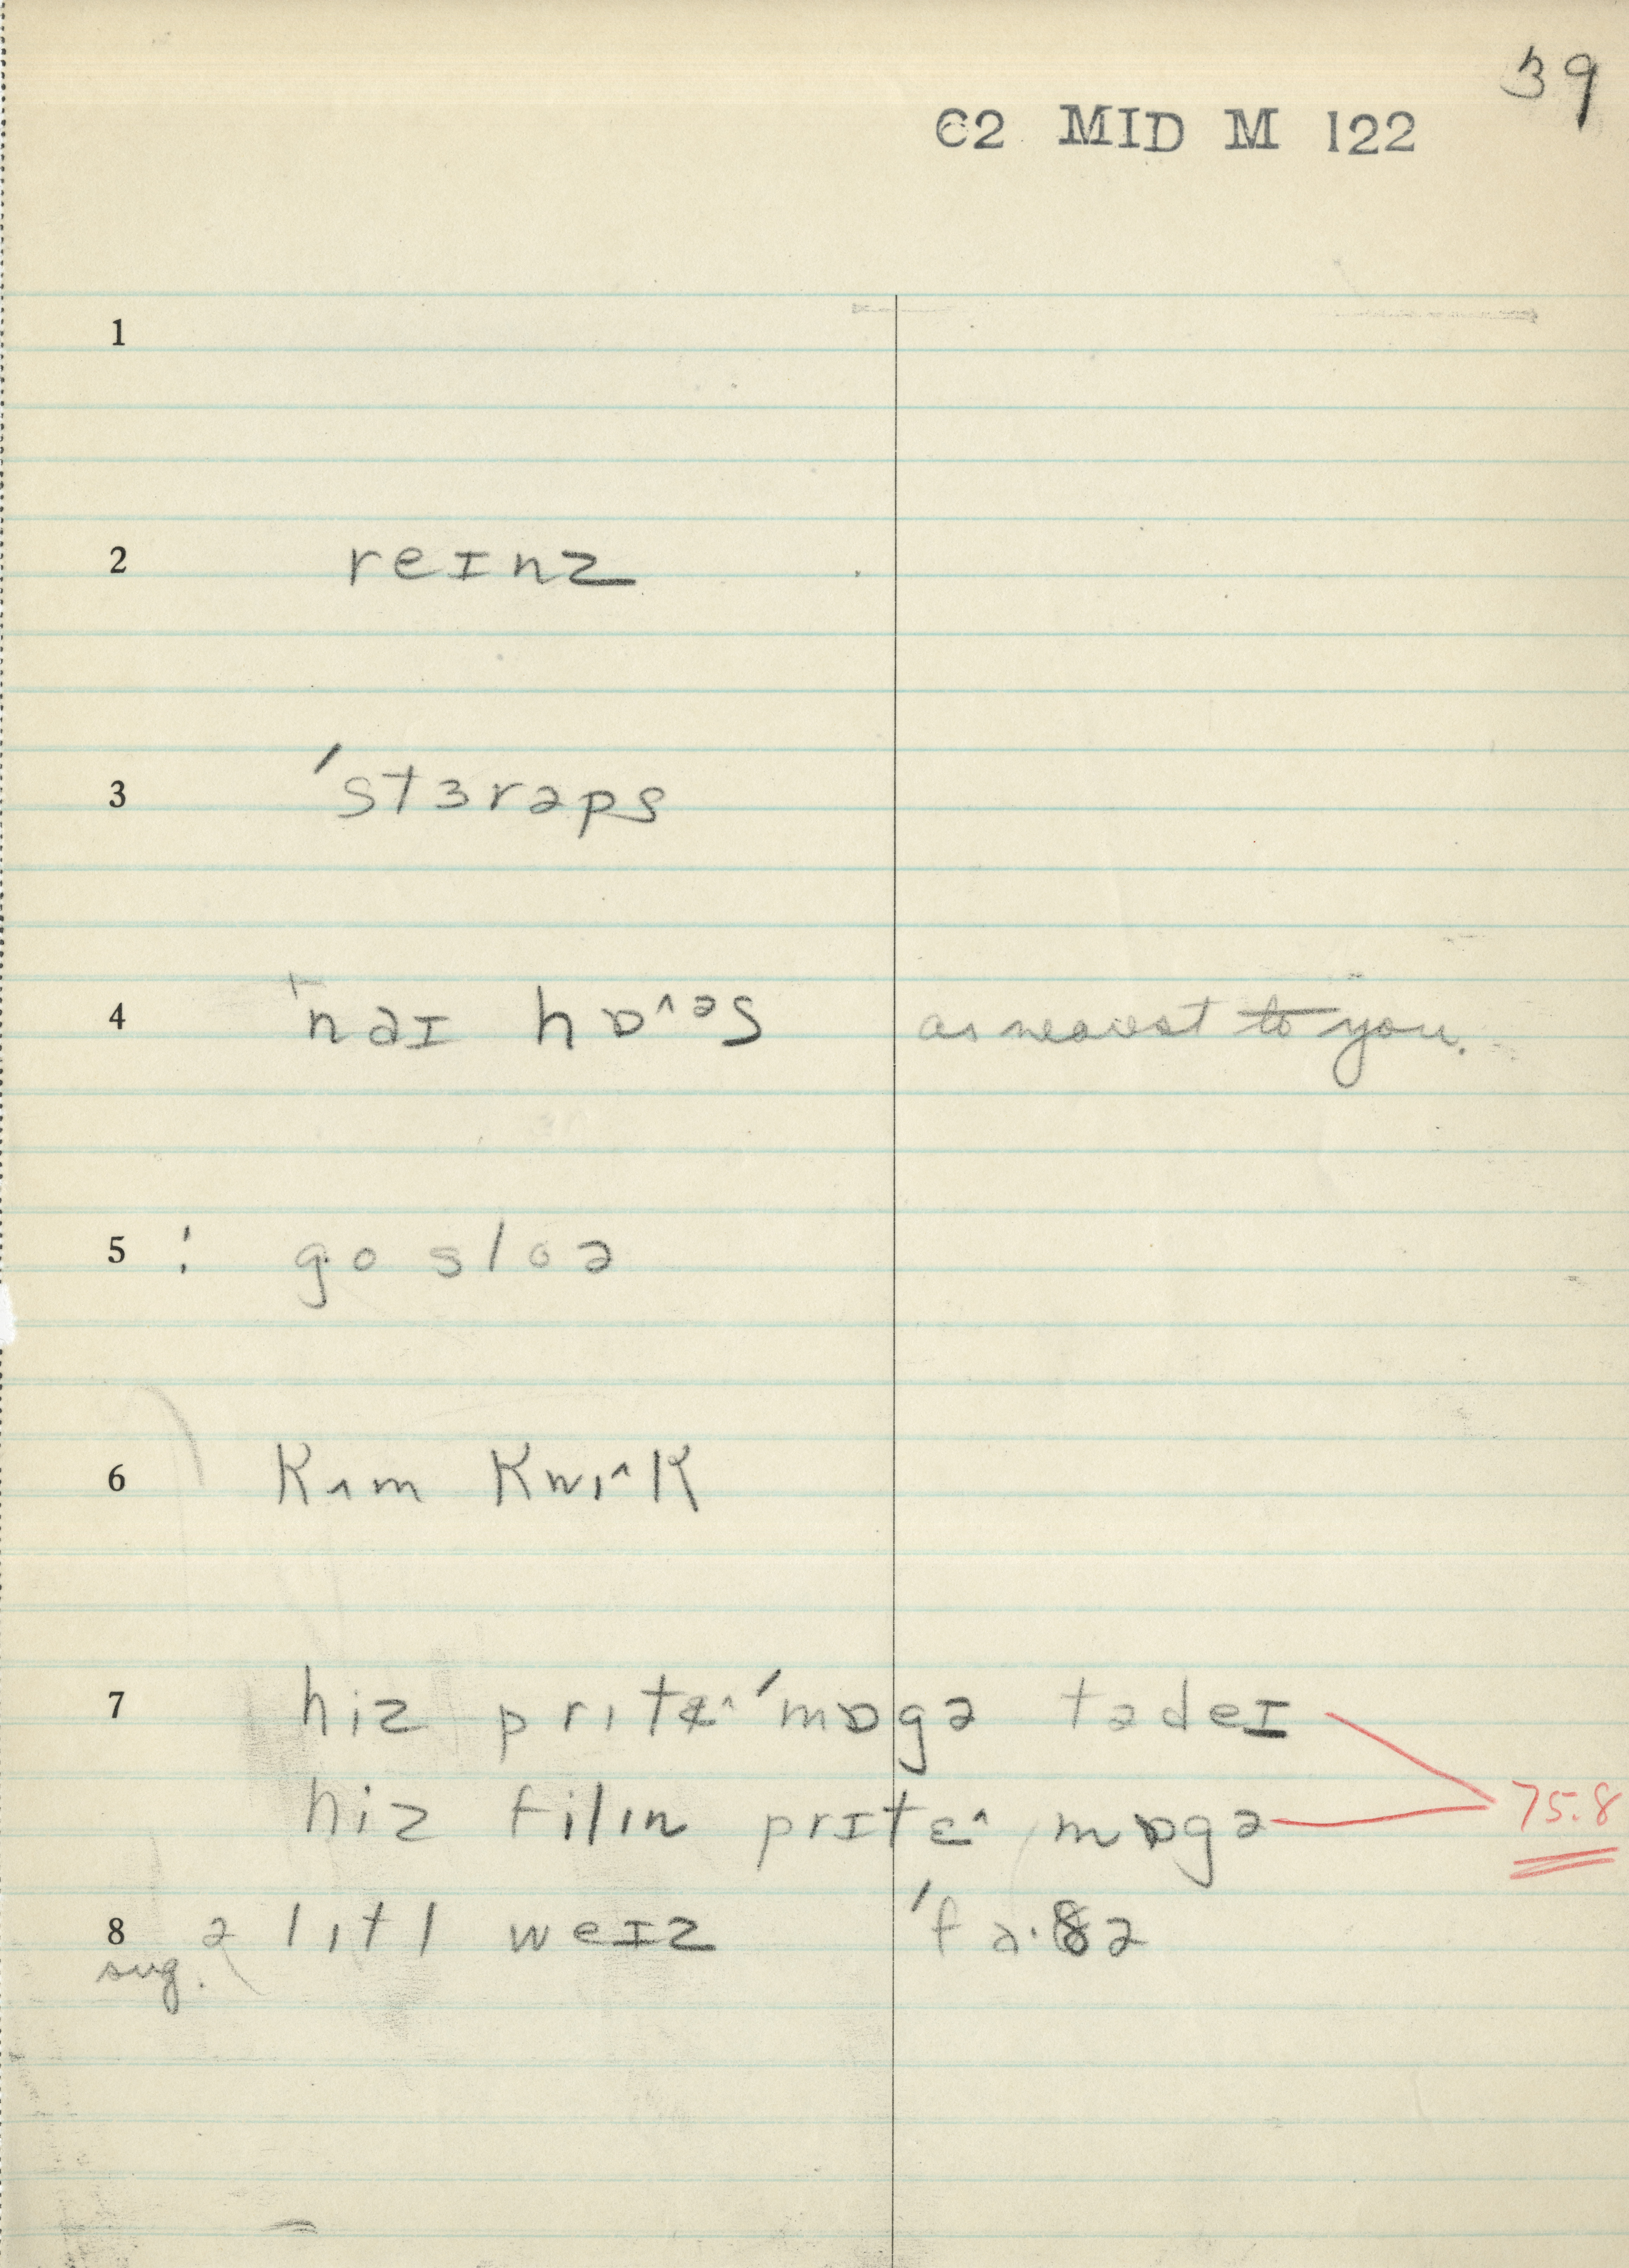 39
C2 MID M 122
1
2 reɪnz
3 ˈstɜrəps
4 ˈnaɪ hɒ^ᵊs as nearest to you.
5 ! go sloə
6 Kʌm Kwɪ^K
7 hiz prɪtɛ^ ˈmɒgə tədeɪ
hiz filɪn prɪtɛ^ mɒgə 75.8
8 ə lɪtl weɪz ˈfa·ðə
sug.